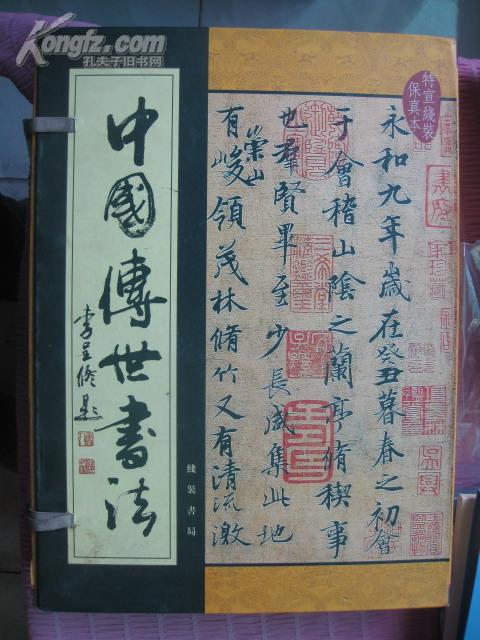 Kongfz.com
孔夫子旧书网
特宣綫裝
保真本
中國傳世書法
綫裝書局
永和九年歲在癸丑暮春之初會
于會稽山陰之蘭亭脩稧事
也羣賢畢至少長咸集此地
有崇山峻領茂林脩竹又有清流激